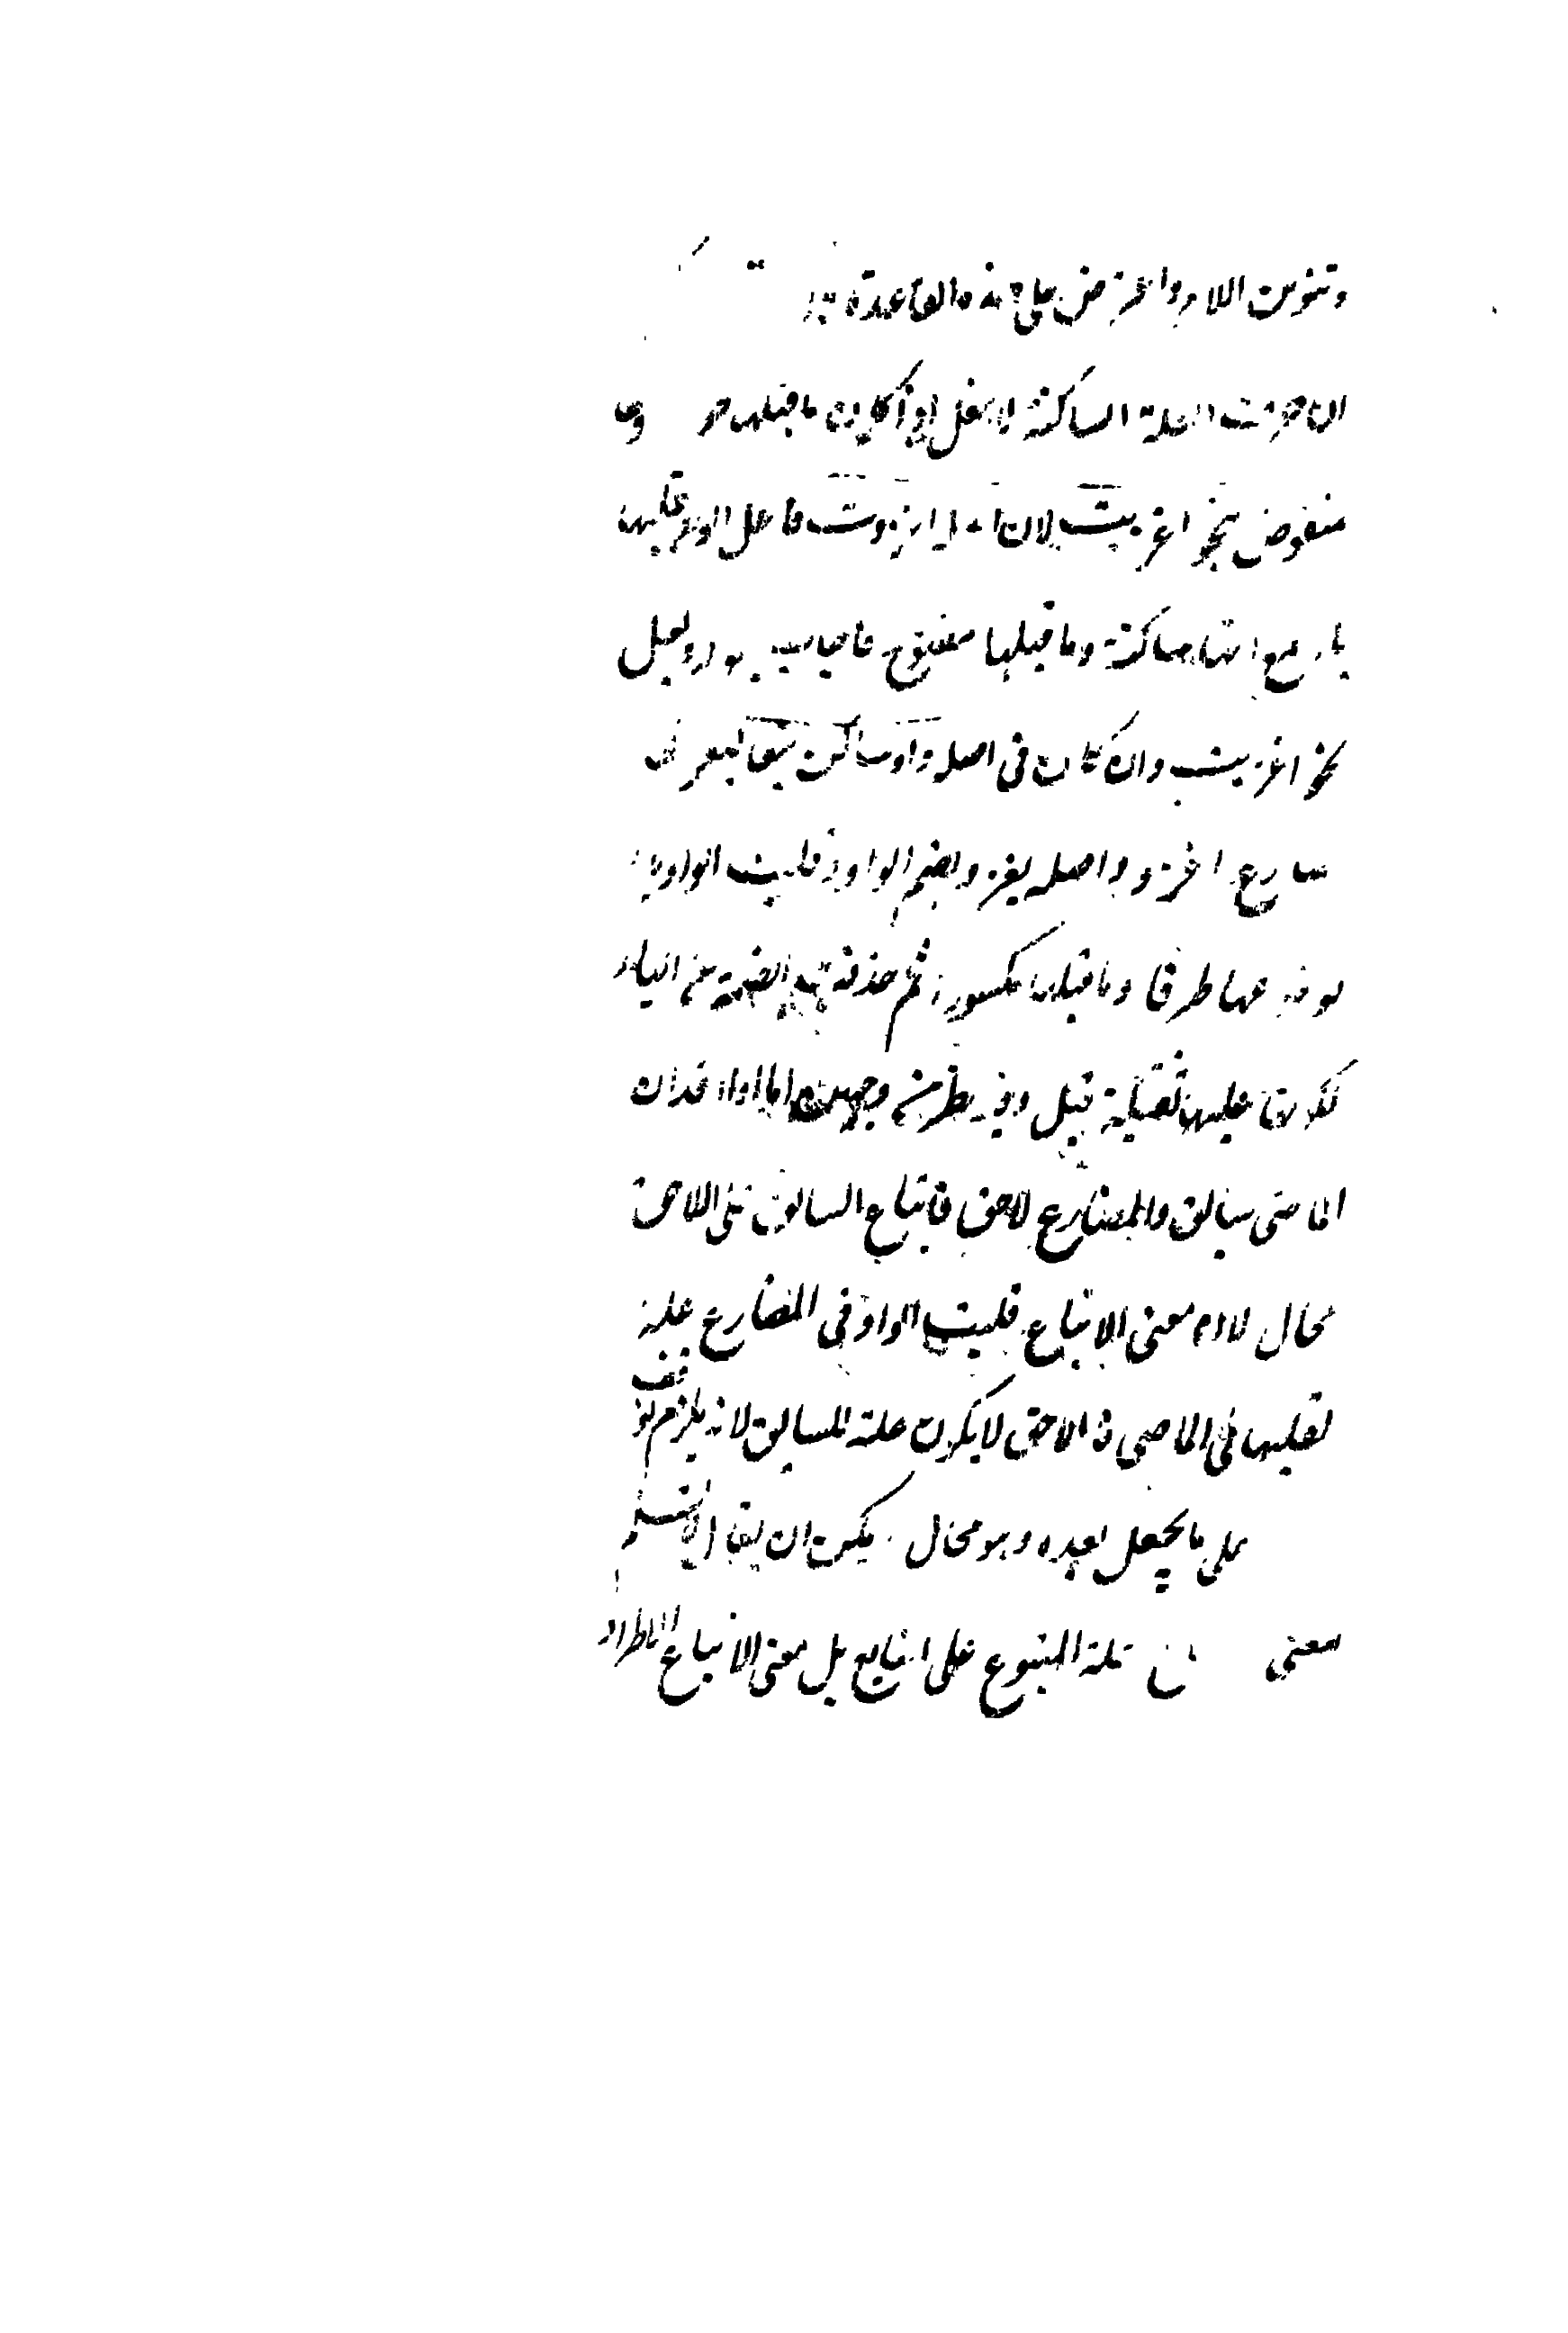 وتنوين اللام واعترض على هذه القاعدة
ان حرف العلة الساكنة لا يعل اذا كان ما قبلها
منقوض بنحو اغزيت لان اصله اغزوت فاعل الواو بقلبها
ياء مع انها ساكنة وما قبلها مفتوح فاجاب بقوله ويعل
نحو اغزيت وان كان في اصله واو ساكن تبعا ليغزي
مضارع اغزو واصله يغزو بضم الواو قلبت الواو ياء
لوقوعها طرفا وما قبلها مكسور ثم حذفت الضمة من الياء
لكونها عليها ثقيلة قيل وفيه نظر من وجهين اما اولا فلان
الماضي سابق والمضارع لاحق فاتباع السابق على اللاحق
محال لان معنى الاتباع قلبت الواو في المضارع علة
لقلبها في الماضي فاللاحق لا يكون علة للسابق لانه يلزم توقف
على ما يحصل بعده وهو محال يمكن ان يقال
معنى علة المتبوع على التابع بل معنى الاتباع الاطراد